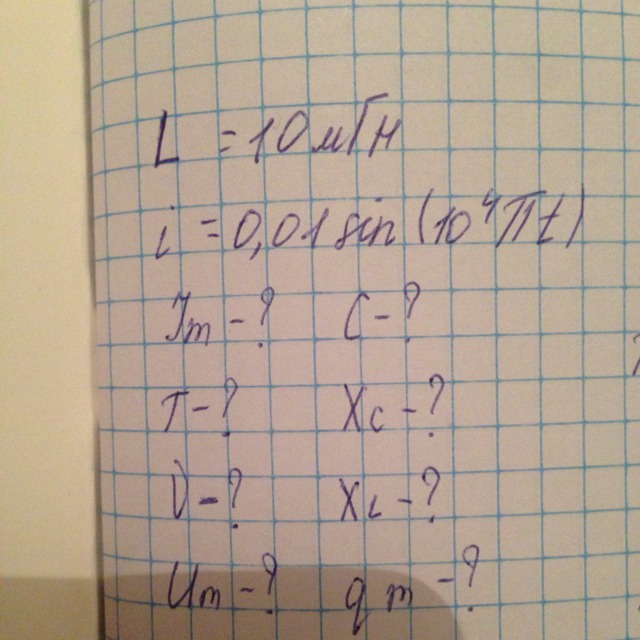 L = 10 мГн
i = 0,01 sin (10⁴πt)
Jm - ? C - ?
T - ? Xc - ?
ν - ? XL - ?
Um - ? qm - ?